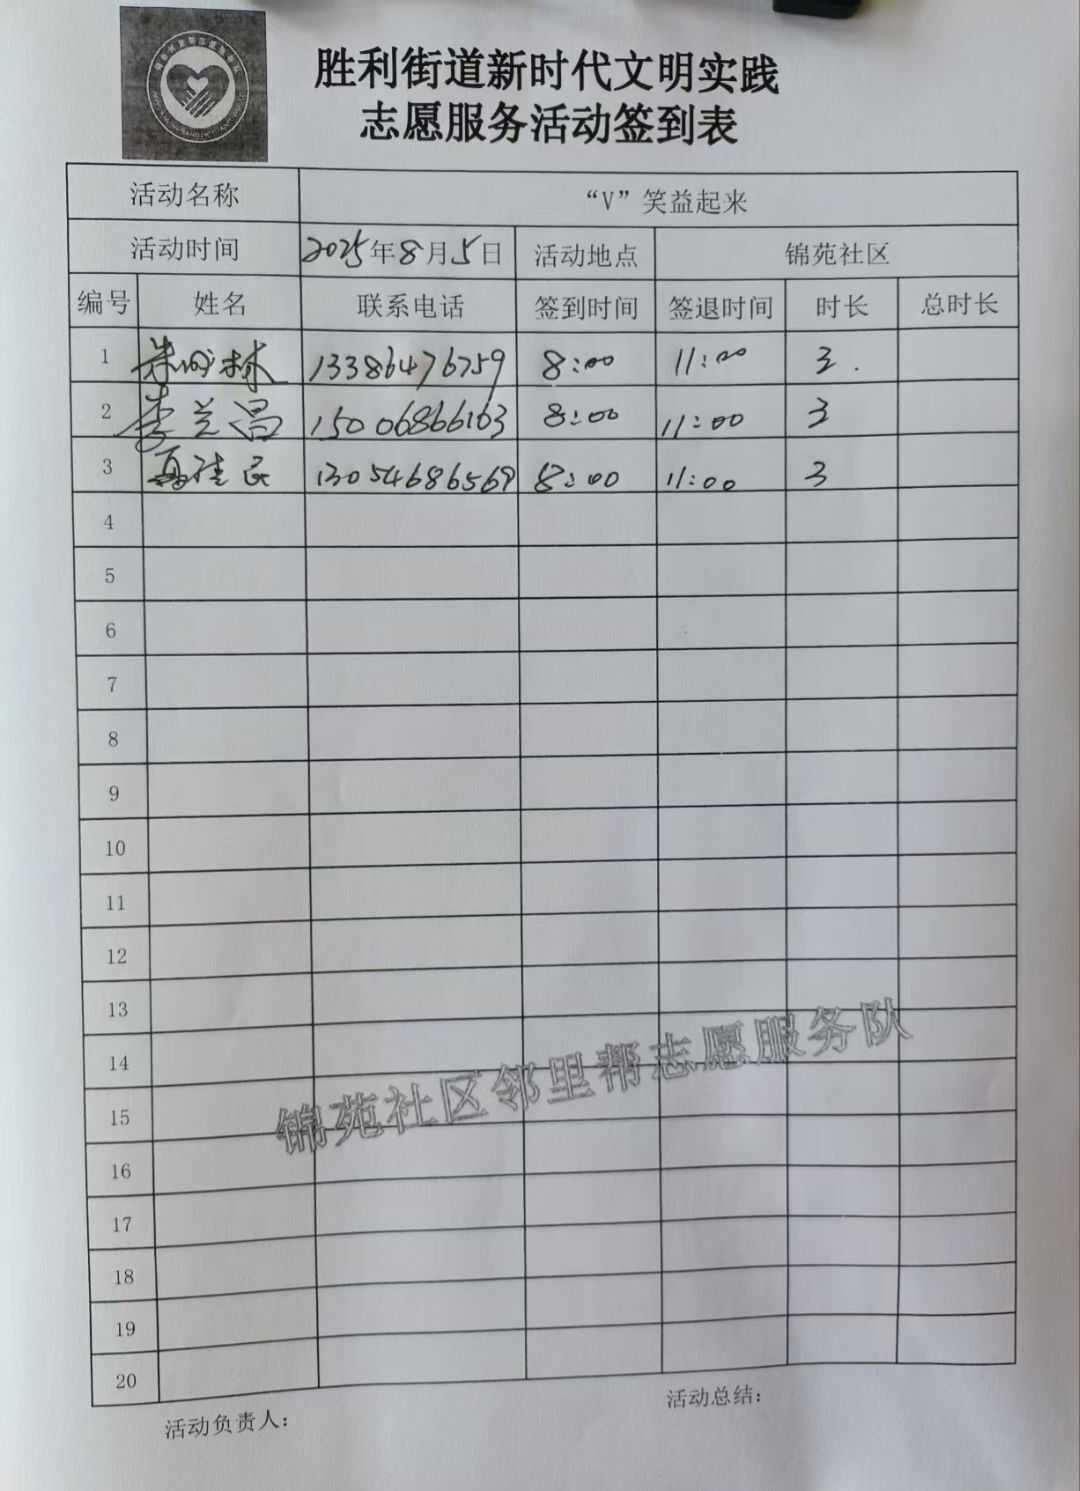 胜利街道新时代文明实践
志愿服务活动签到表
活动名称 “V”笑益起来
活动时间 2025年8月5日 活动地点 锦苑社区
编号 姓名 联系电话 签到时间 签退时间 时长 总时长
1 林 13386476759 8:00 11:00 3
2 李兰昌 15006866163 8:00 11:00 3
3 民 13054686569 8:00 11:00 3
4
5
6
7
8
9
10
11
12
13
14
15
16
17
18
19
20
锦苑社区邻里帮志愿服务队
活动负责人: 活动总结: